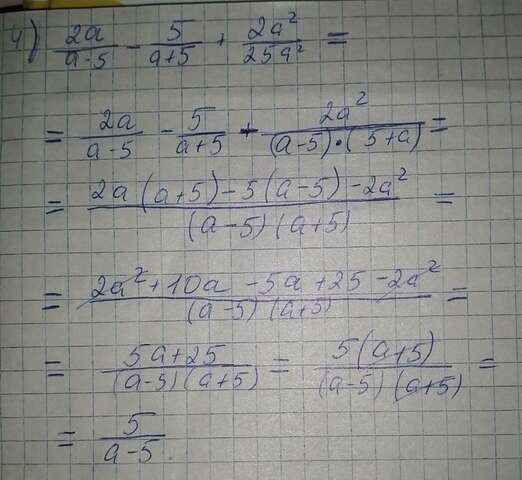 4) 2a/(a-5) - 5/(a+5) + 2a²/25a² =
= 2a/(a-5) - 5/(a+5) + 2a²/((a-5)·(5+a)) =
= (2a(a+5)-5(a-5)-2a²)/((a-5)(a+5)) =
= (2a²+10a-5a+25-2a²)/((a-5)(a+5)) =
= (5a+25)/((a-5)(a+5)) = 5(a+5)/((a-5)(a+5)) =
= 5/(a-5).